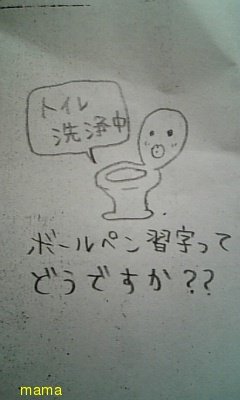 トイレ
洗浄中
ボールペン習字って
どうですか??
mama